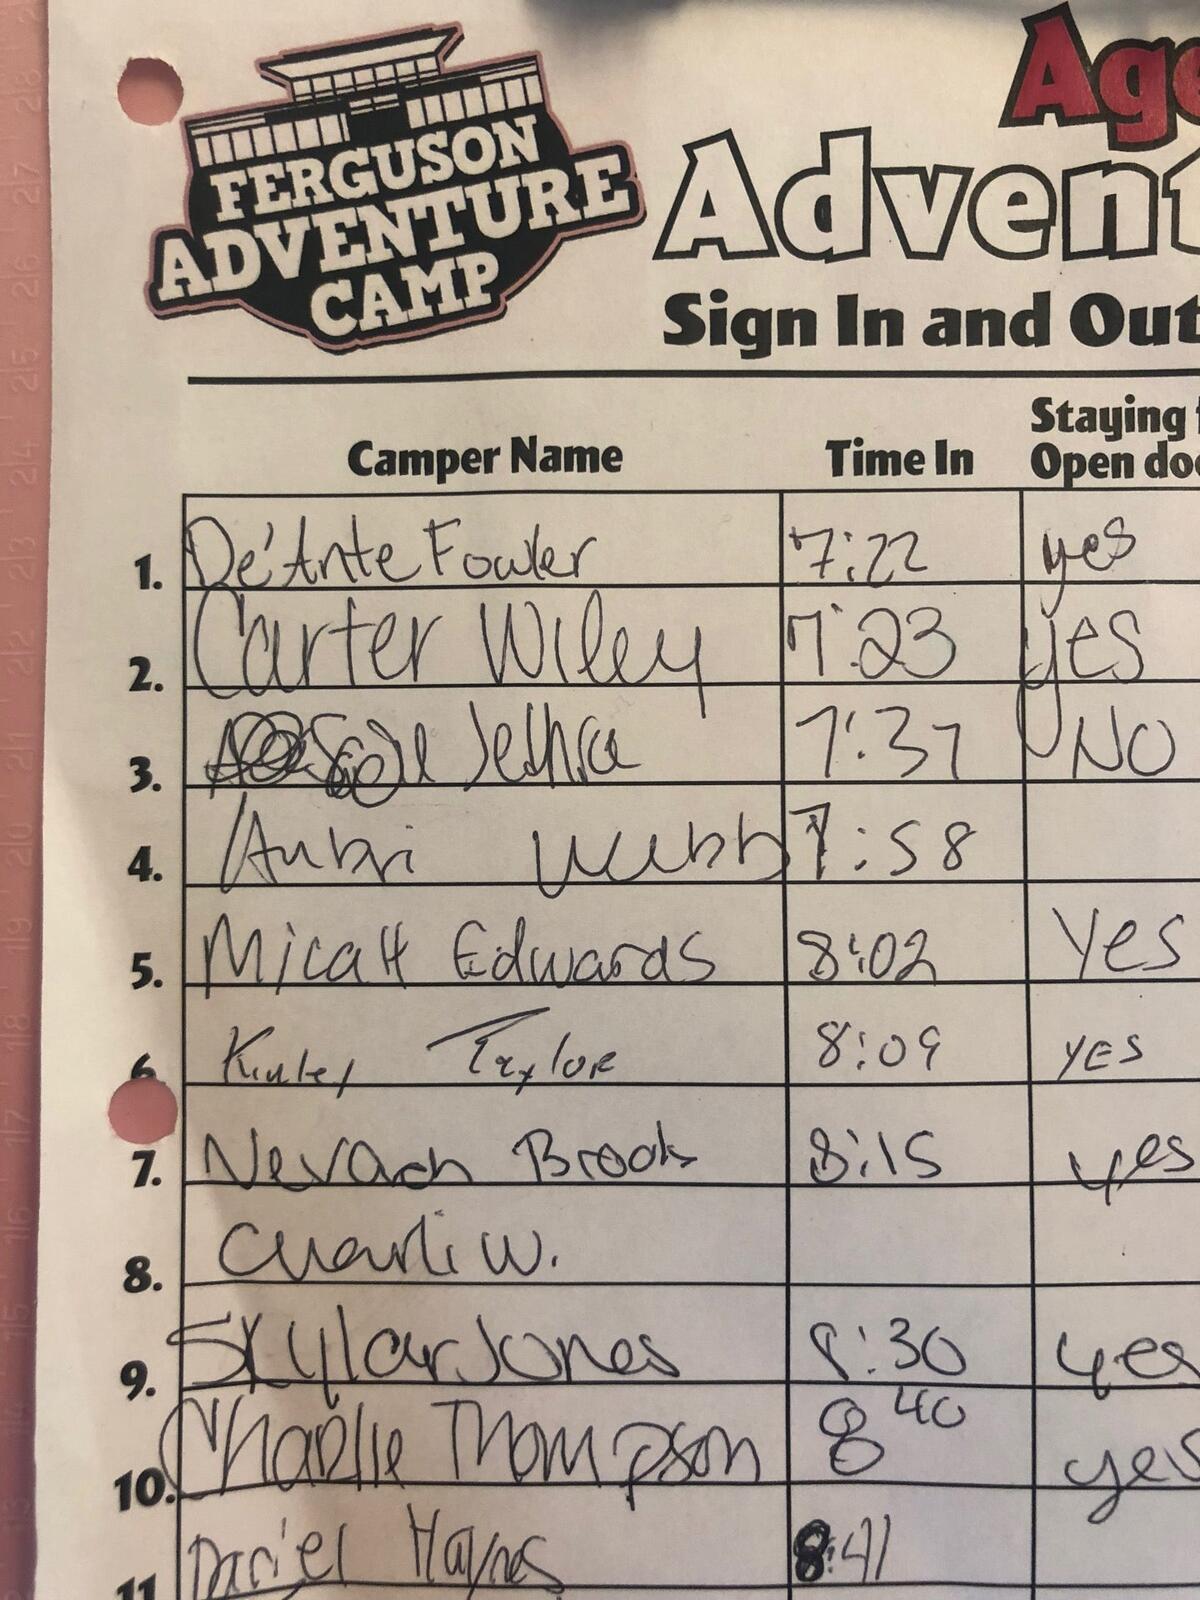 FERGUSON
ADVENTURE
CAMP
Age
Advent
Sign In and Out
Camper Name Time In Staying Open doo
1. De'Ante Fowler 7:22 yes
2. Carter Wiley 7:23 yes
3. 7:37 NO
4. Aubri Webb 7:58
5. MicaH Edwards 8:02 Yes
6 Kinley Taylor 8:09 YES
7. Nevaeh Brooks 8:15 yes
8. Charli W.
9. Skylar Jones 8:30 yes
10. Charlie Thompson 8 40 yes
11 Daniel Haynes 8:41
28
27
26
25
24
23
22
21
20
19
18
17
16
15